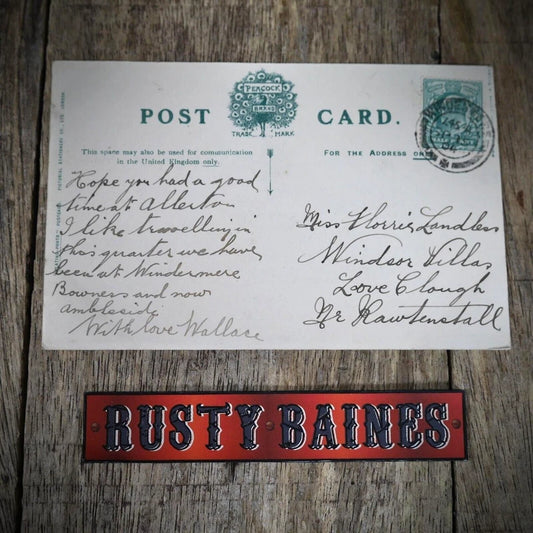 PEACOCK
BRAND
TRADE MARK
POST CARD.
This space may also be used for communication
in the United Kingdom only.
FOR THE ADDRESS ONLY
Hope you had a good
time at Allerton
I like travelling in
this quarter we have
been at Windermere
Bowness and now
ambleside
With love Wallace
Miss Florrie Landless
Windsor Villas
Love Clough
Nr Rawtenstall
RUSTY BAINES